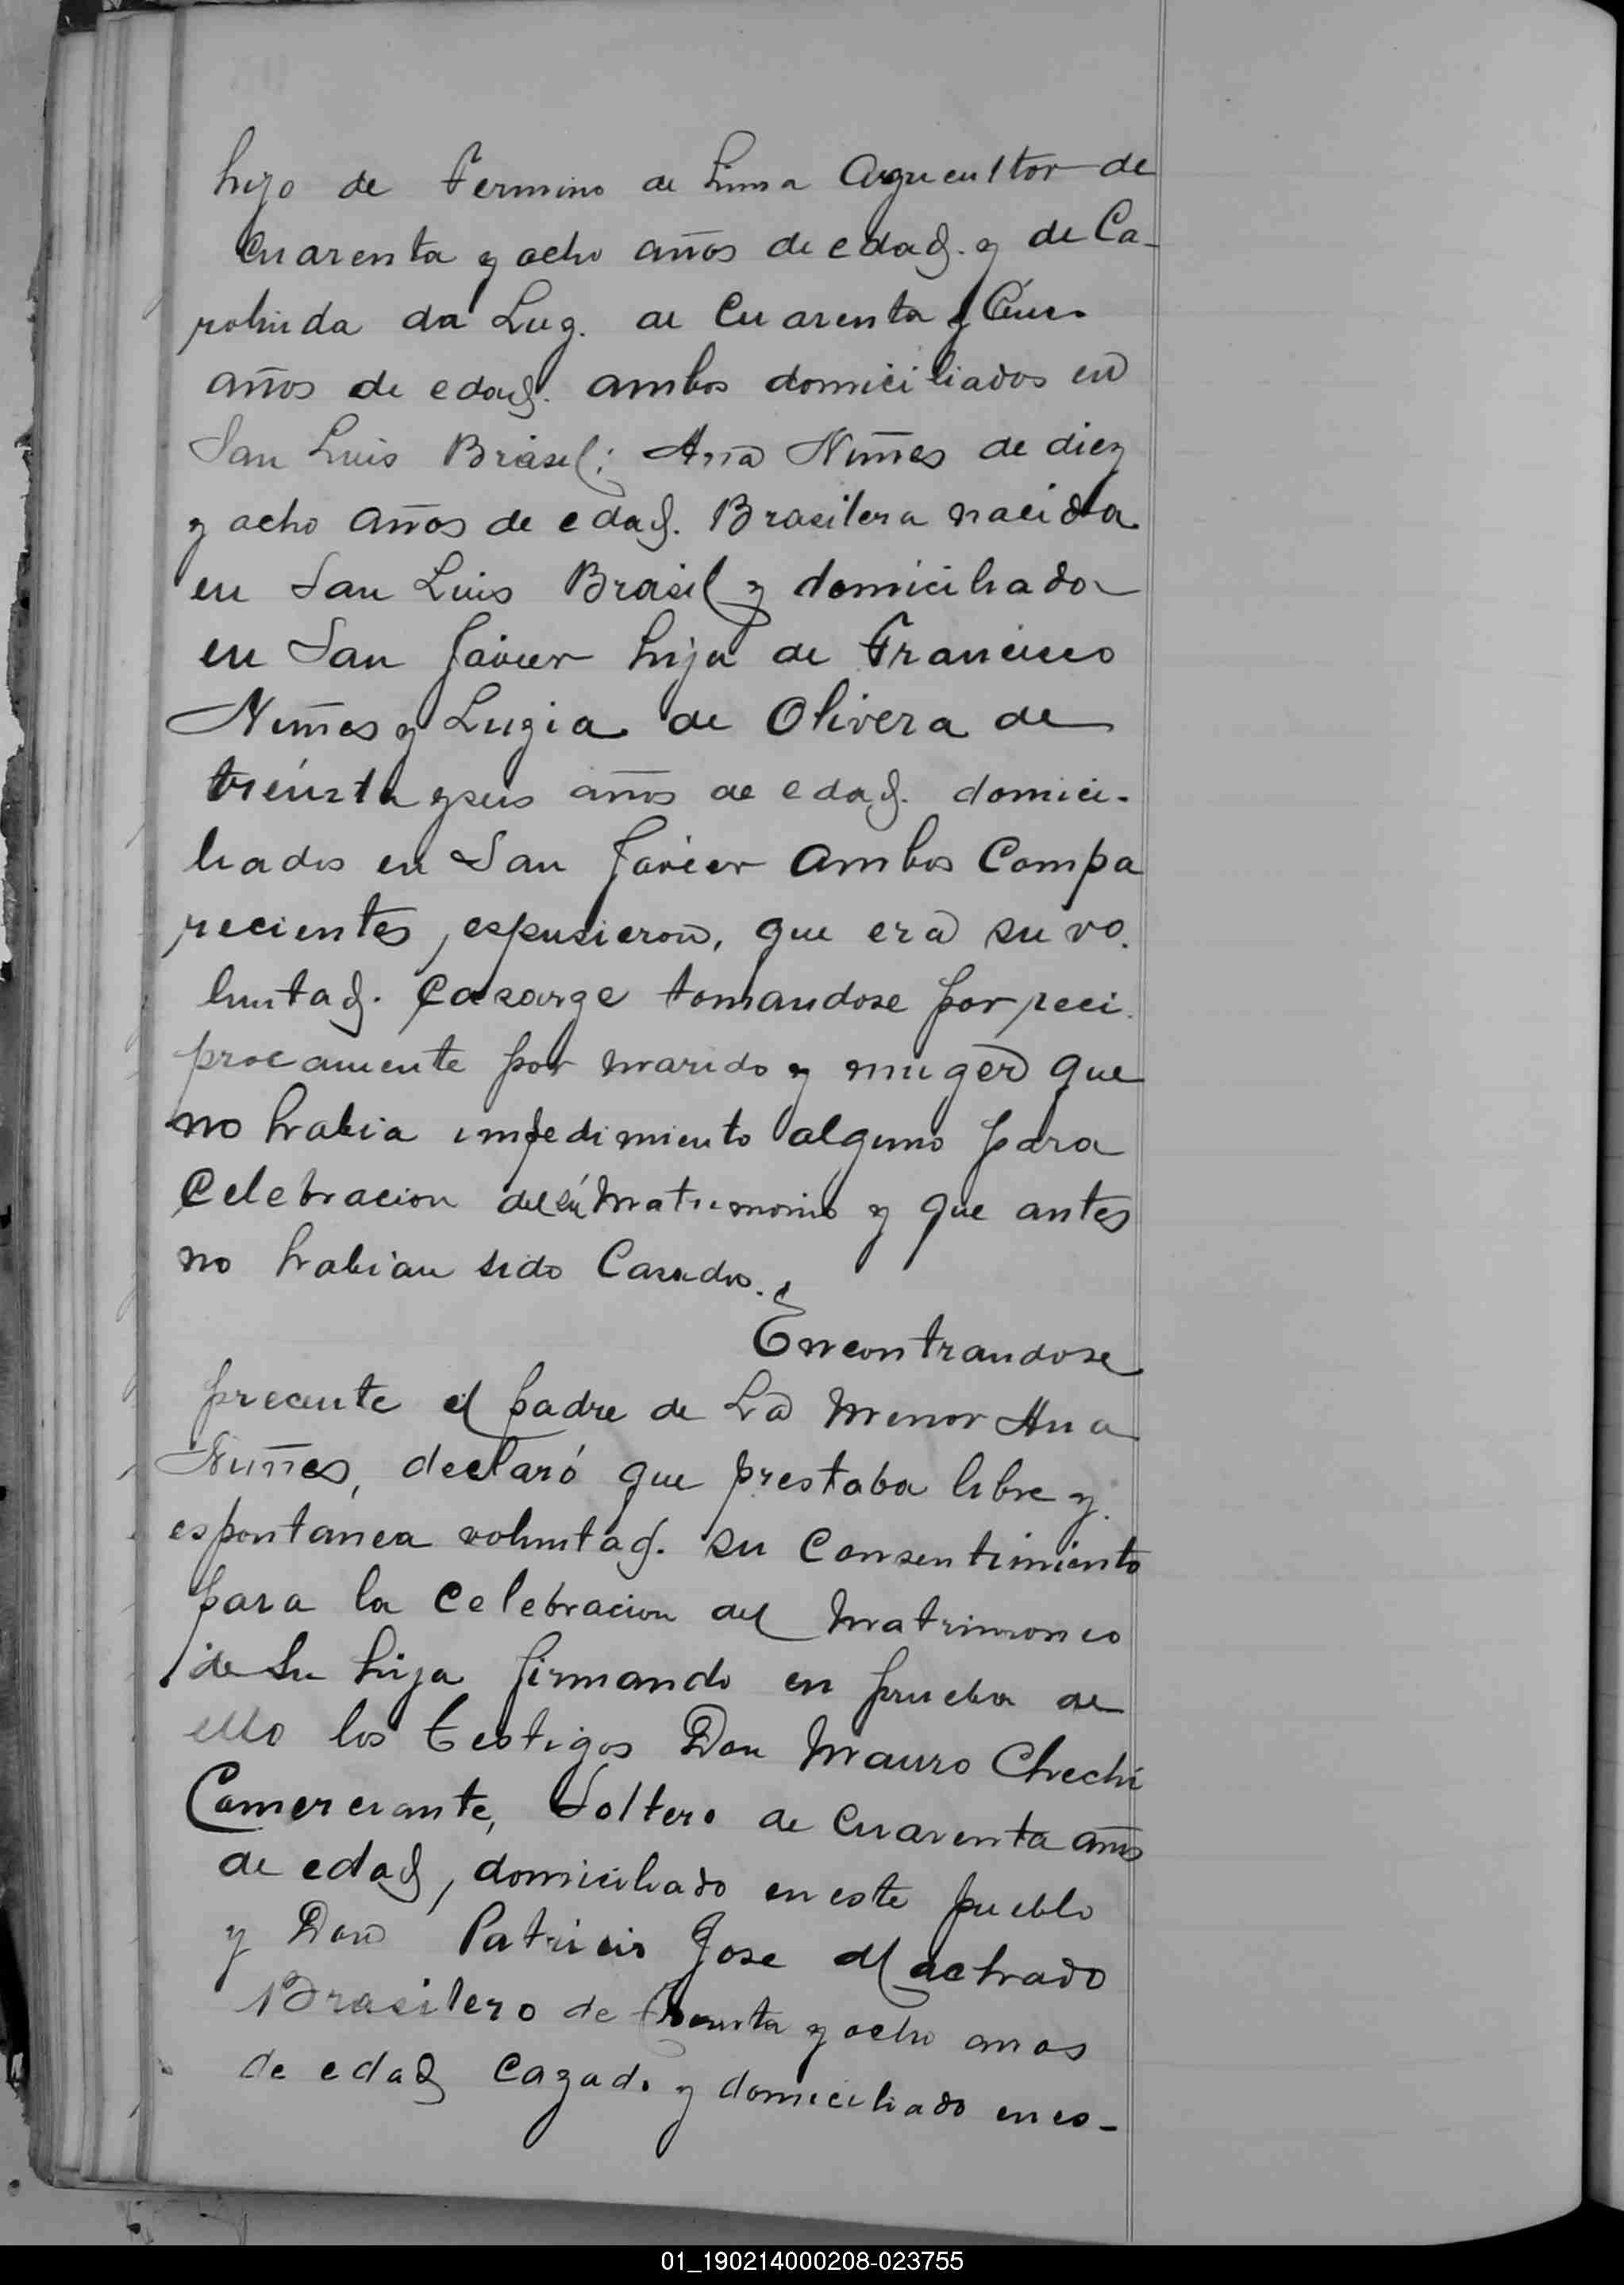 hijo de Fermino de Lima Agricultor de
Cuarenta y ocho años de edad. y de Ca-
rolinda da Luz. de Cuarenta y Cinco
años de edad. ambos domiciliados en
San Luis Brasil; Ana Nuñes de diez
y ocho años de edad. Brasilera nacida
en San Luis Brasil y domiciliada
en San Javier hija de Francisco
Nuñes y Luzia de Olivera de
treinta y seis años de edad. domici-
liados en San Javier ambos Compa
recientes, espusieron, que era su vo.
luntad. Casarge tomandose por reci
procamente por marido y muger que
no habia impedimiento alguno para
Celebracion del su Matrimonio y que antes
no habian sido Casados.
Encontrandose
precente el padre de La Menor Ana
Nuñes, declaró que prestaba libre y
espontanea voluntad. su Consentimiento
para la Celebracion del Matrimonio
de su hija firmando en prueba de
ello los testigos Don Mauro Chechi
Comerciante, Soltero de Cuarenta años
de edad, domiciliado en este pueblo
y Don Patricio Jose Machado
Brasilero de treinta y ocho anos
de edad Cazado y domiciliado en es-
01_190214000208-023755